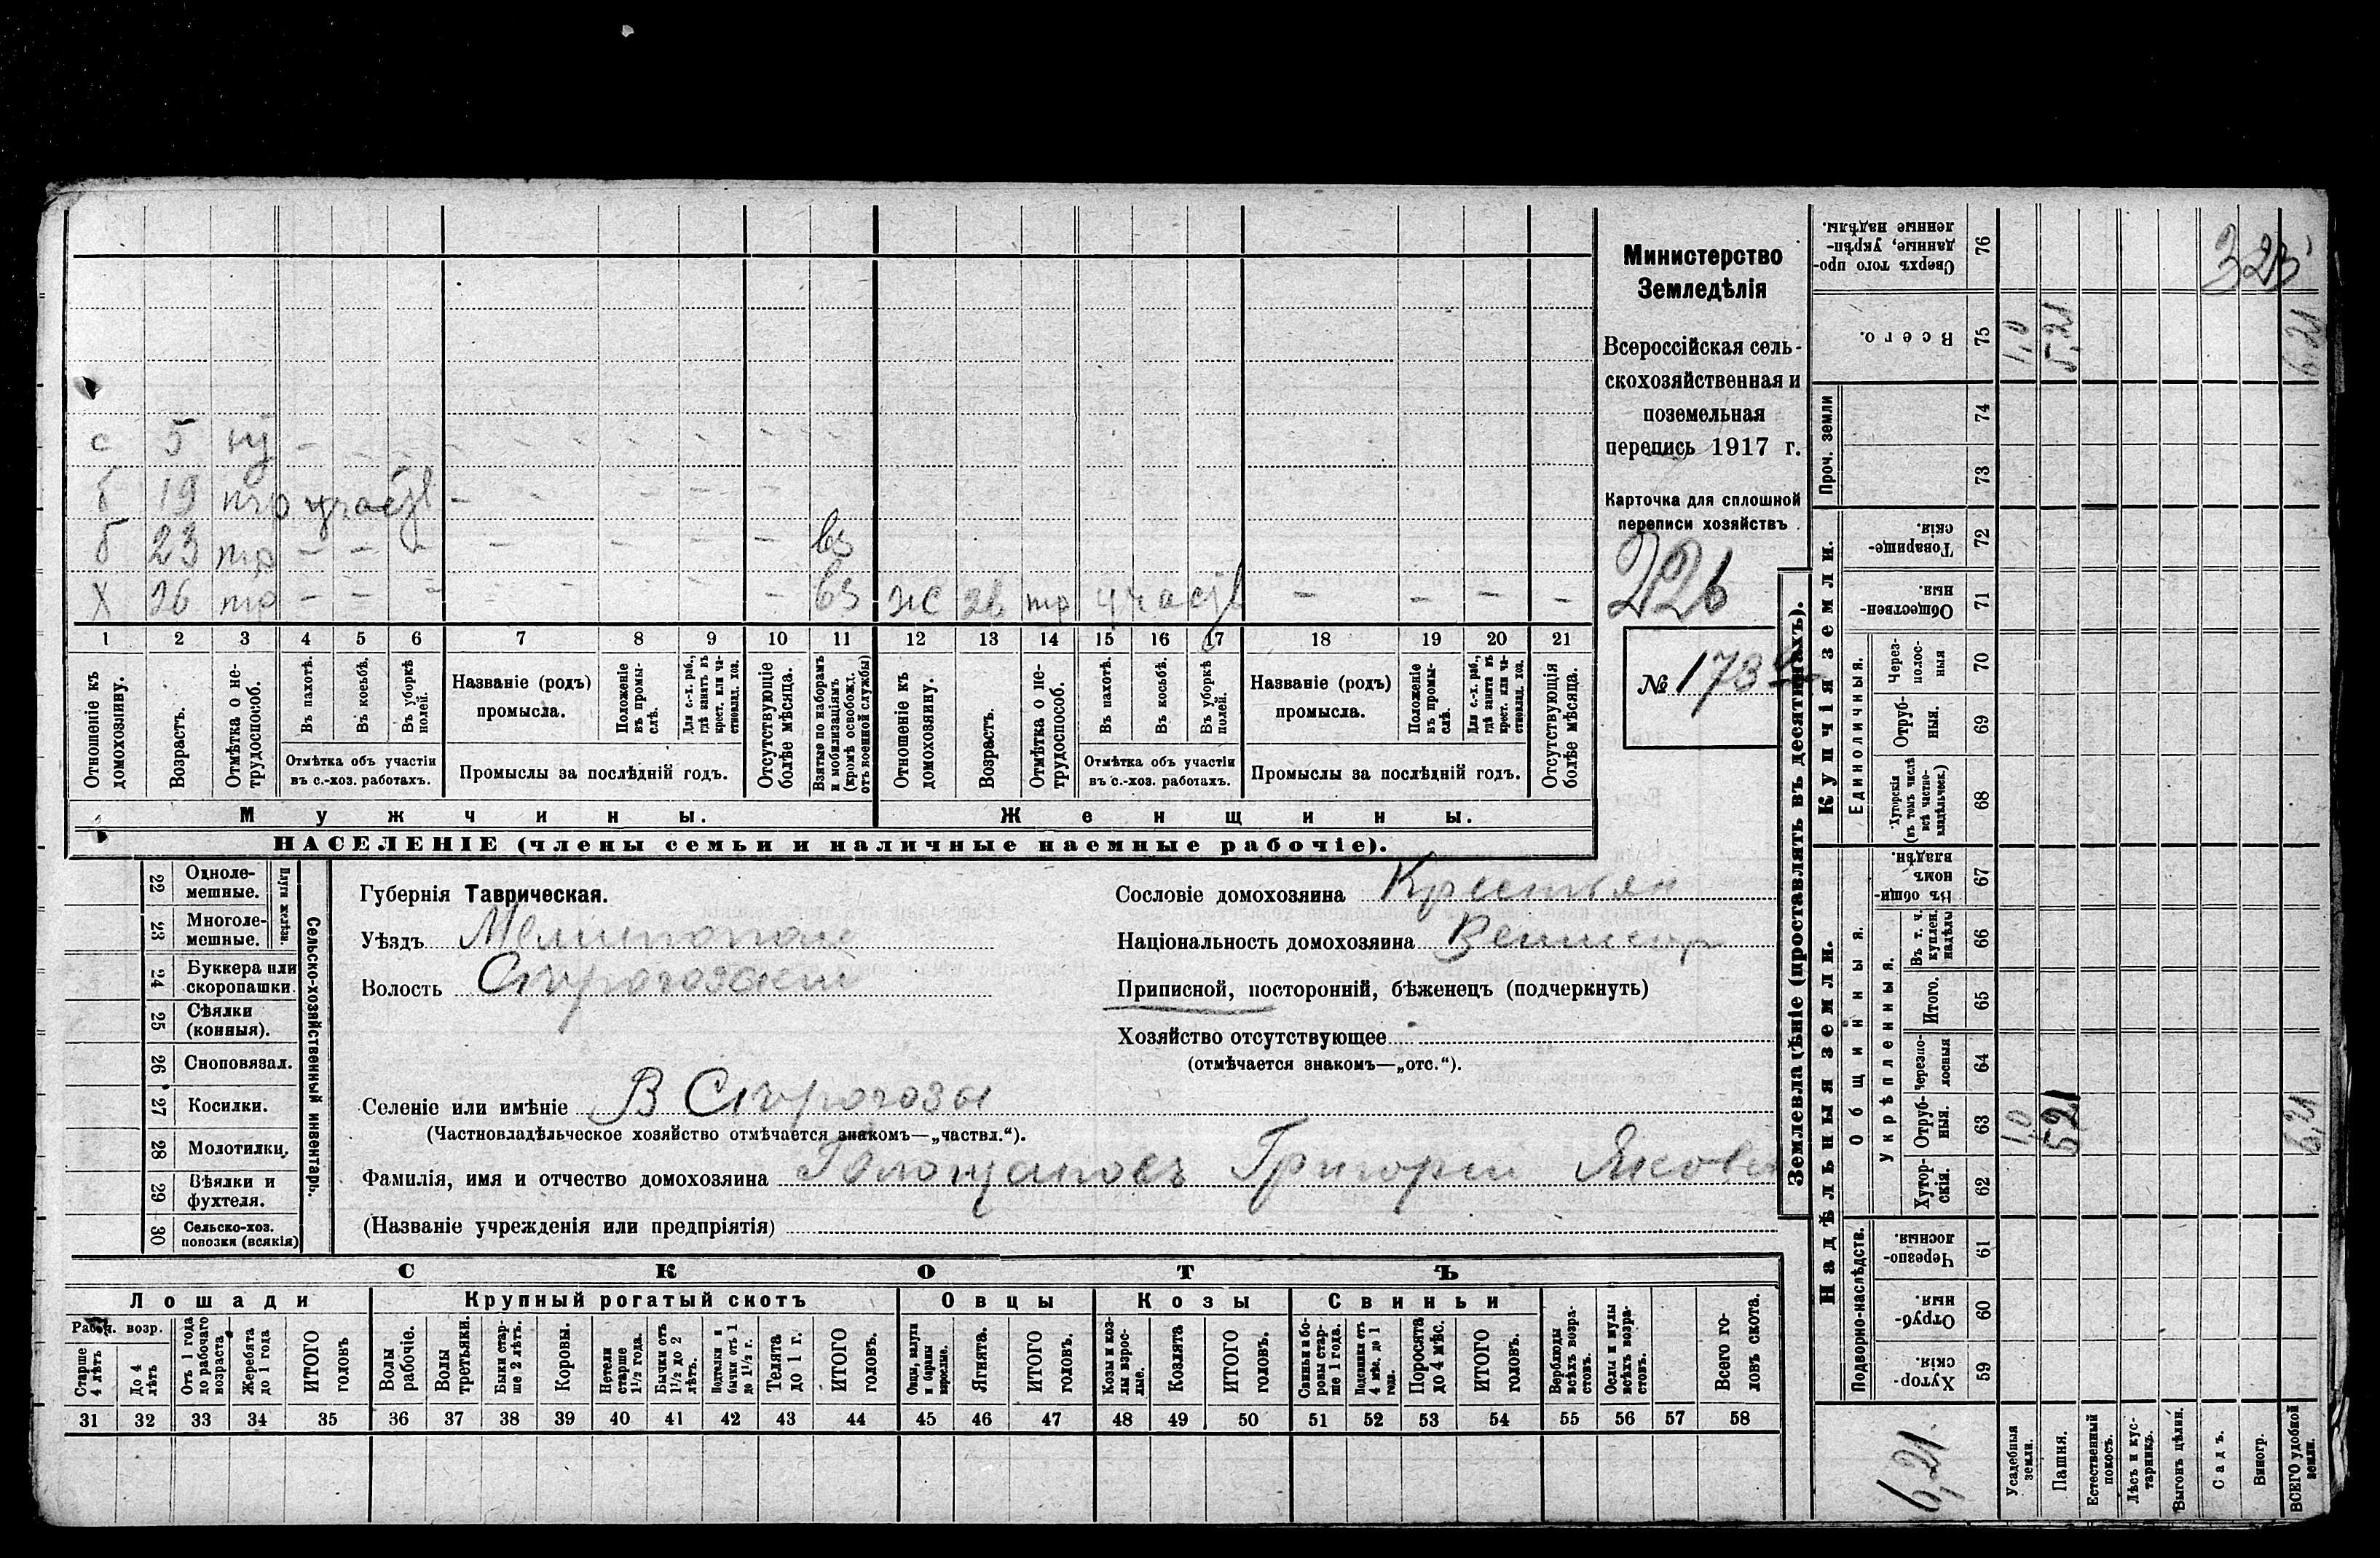 Министерство
Земледѣлія
Всероссійская сель-
скохозяйственная и
поземельная
перепись 1917 г.
Карточка для сплошной
переписи хозяйствъ
226
№ 173
с 5 - - - - - - - -
б 19 - - - - -
б 23 тр - - - - - - - вз
Х 26 тр - - - - вз ж тр участ - - - -
1 2 3 4 5 6 7 8 9 10 11 12 13 14 15 16 17 18 19 20 21
Отношеніе къ домохозяину.
Возрастъ.
Отмѣтка о не-трудоспособ.
Въ пахотѣ.
Въ косьбѣ.
Въ уборкѣ полей.
Отмѣтка объ участіи
въ с.-хоз. работахъ.
Названіе (родъ)
промысла.
Положеніе въ промы-слѣ.
Для с.-х. раб., гдѣ занятъ въ крест. или ча-стновлад. хоз.
Промыслы за послѣдній годъ.
Отсутствующіе болѣе мѣсяца.
Взятые по наборамъ и мобилизаціямъ (кромѣ освобожд. отъ военной службы)
Отношеніе къ домохозяину.
Возрастъ.
Отмѣтка о не-трудоспособ.
Въ пахотѣ.
Въ косьбѣ.
Въ уборкѣ полей.
Отмѣтка объ участіи
въ с.-хоз. работахъ.
Названіе (родъ)
промысла.
Положеніе въ промы-слѣ.
Для с.-х. раб., гдѣ занята въ крест. или ча-стновлад. хоз.
Промыслы за послѣдній годъ.
Отсутствующія болѣе мѣсяца.
Мужчины. Женщины.
НАСЕЛЕНІЕ (члены семьи и наличные наемные рабочіе).
22 Однолемешные.
23 Многоле-мешные.
Плуги желѣз.
24 Буккера или скоропашки.
25 Сѣялки (конныя).
26 Сноповязал.
27 Косилки.
28 Молотилки.
29 Вѣялки и фухтеля.
30 Сельско-хоз. повозки (всякія)
Сельско-хозяйственный инвентарь.
Губернія Таврическая.
Уѣздъ Мелитопол
Волость
Селеніе или имѣніе В Сѣрогозы
(Частновладѣльческое хозяйство отмѣчается знакомъ—„частвл.“).
Фамилія, имя и отчество домохозяина Григорій Яков
(Названіе учрежденія или предпріятія)
Сословіе домохозяина Крестьян
Національность домохозяина Великор
Приписной, посторонній, бѣженецъ (подчеркнуть)
Хозяйство отсутствующее
(отмѣчается знакомъ—„отс.“).
СКОТЪ
Лошади Крупный рогатый скотъ Овцы Козы Свиньи
Рабоч. возр.
Старше 4 лѣтъ
До 4 лѣтъ
Отъ 1 года до рабочаго возраста
Жеребята до 1 года
ИТОГО головъ
Волы рабочіе.
Волы третьяки.
Быки стар-ше 2 лѣтъ.
Коровы.
Нетели старше 1½ года.
Бычки отъ 1½ до 2 лѣтъ.
Подтелки и бычки отъ 1 до 1½ г.
Телята до 1 г.
ИТОГО головъ.
Овцы, валухи и бараны взрослые.
Ягнята.
ИТОГО головъ.
Козы и коз-лы взрос-лые.
Козлята
ИТОГО головъ.
Свиньи и бо-ровы стар-ше 1 года.
Подсвинки отъ 4 мѣс. до 1 года.
Поросята до 4 мѣс.
ИТОГО головъ.
Верблюды всѣхъ возра-стовъ.
Ослы и мулы всѣхъ возра-стовъ.
Всего го-ловъ скота.
31 32 33 34 35 36 37 38 39 40 41 42 43 44 45 46 47 48 49 50 51 52 53 54 55 56 57 58
Землевладѣніе (проставлять въ десятинахъ).
Надѣльныя земли. Купчія земли. Проч. земли
Подворно-наслѣдств.
Общинныя.
Укрѣпленныя.
Единоличныя.
59 Хутор-скія.
60 Отруб-ныя.
61 Черезпо-лосныя
62 Хутор-скія.
63 Отруб-ныя. 1,0 5,21 6,21
64 Черезпо-лосныя
65 Итого.
66 Въ т. ч. куплен. надѣлы
67 Въ общин-номъ владѣн.
68 Хуторскія (въ томъ числѣ всѣ частно-владѣльческ.)
69 Отруб-ныя.
70 Через-полос-ныя
71 Обществен-ныя.
72 Товарище-скія.
73
74
75 Всего. 1,0 5,21 6,21
76 Сверхъ того про-данные, укрѣп-ленные надѣлы.
323
6,21
Усадебныя земли.
Пашня.
Естественный покосъ.
Лѣсъ и кус-тарникъ.
Выгонъ цѣлин.
Садъ.
Виногр.
ВСЕГО удобной земли.